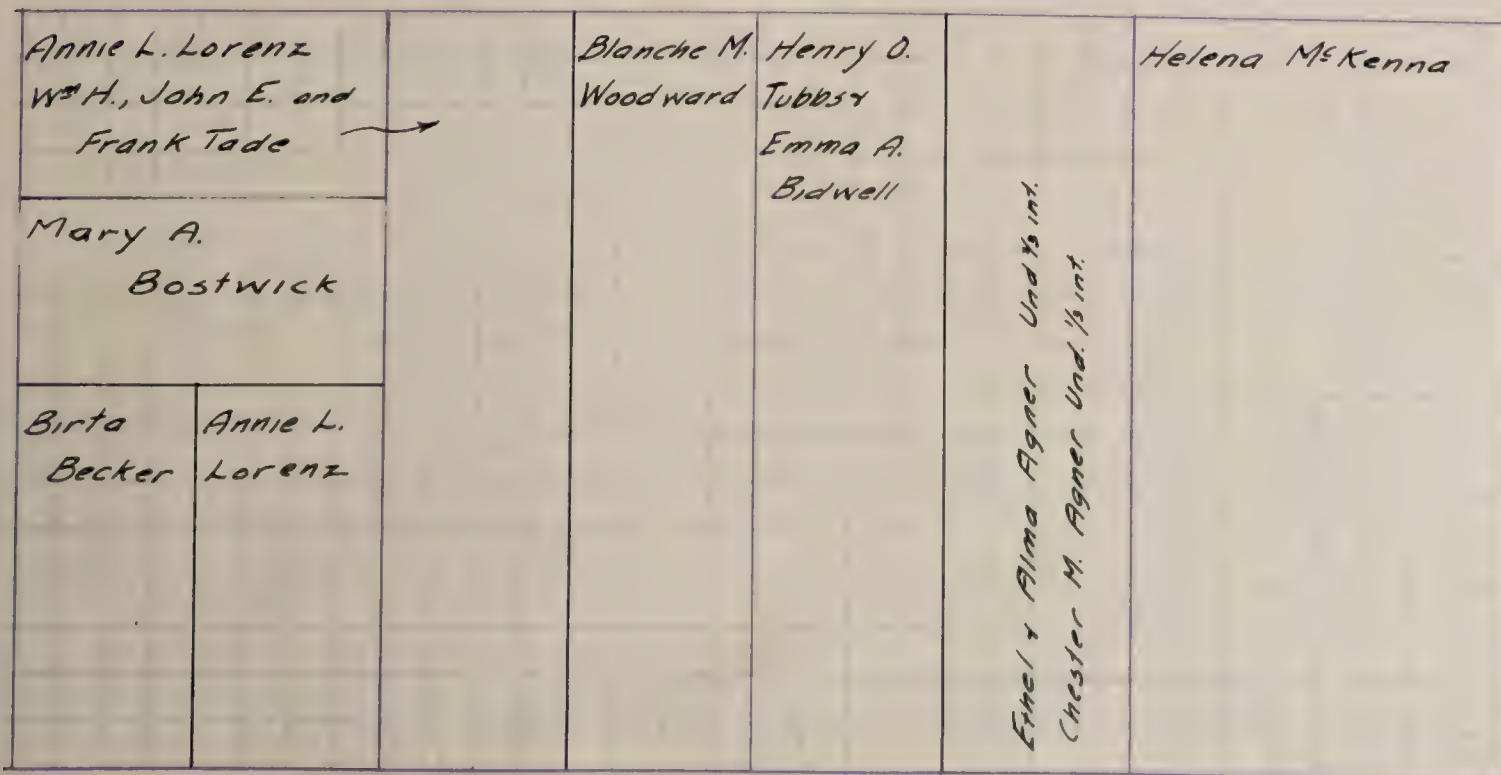 Annie L. Lorenz
Wm H., John E. and
Frank Tade
Mary A.
Bostwick
Birta
Becker
Annie L.
Lorenz
Blanche M.
Woodward
Henry O.
Tubbs &
Emma A.
Bidwell
Ethel & Alma Agner Und ⅔ int.
Chester M. Agner Und. ⅓ int.
Helena McKenna